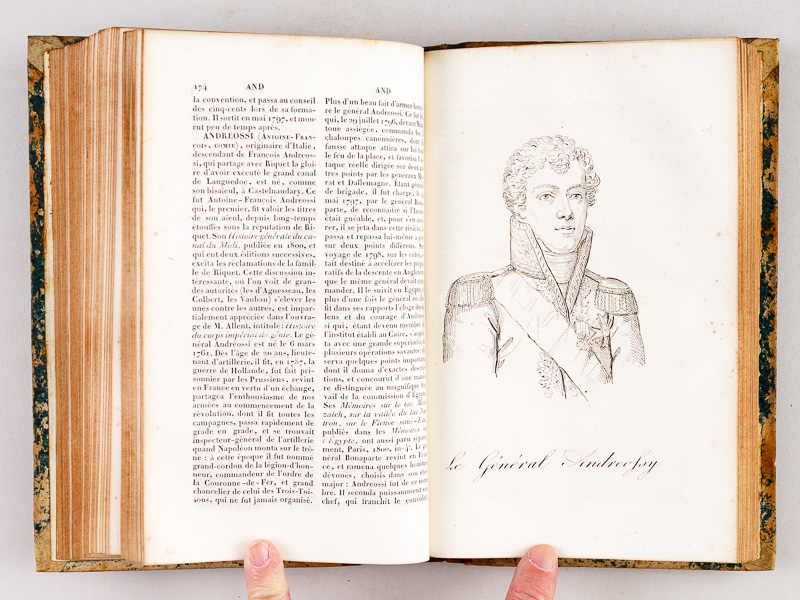 174 AND
la convention, et passa au conseil
des cinq-cents lors de sa forma-
tion. Il sortit en mai 1797, et mou-
rut peu de temps après.
ANDREOSSI (Antoine-Fran-
çois, comte), originaire d'Italie,
descendant de Francois Andreos-
si, qui partage avec Riquet la gloi-
re d'avoir exécuté le grand canal
de Languedoc, est né, comme
son bisaïeul, à Castelnaudary. Ce
fut Antoine-François Andreossi
qui, le premier, fit valoir les titres
de son aïeul, depuis long-temps
étouffés sous la réputation de Ri-
quet. Son Histoire générale du ca-
nal du Midi, publiée en 1800, et
qui eut deux éditions successives,
excita les réclamations de la famil-
le de Riquet. Cette discussion in-
téressante, où l'on voit de gran-
des autorités (les d'Aguesseau, les
Colbert, les Vauban) s'élever les
unes contre les autres, est impar-
tialement appréciée dans l'ouvra-
ge de M. Allent, intitulé: Histoire
du corps impérial du génie. Le gé-
néral Andreossi est né le 6 mars
1761. Dès l'âge de 20 ans, lieute-
nant d'artillerie, il fit, en 1787, la
guerre de Hollande, fut fait pri-
sonnier par les Prussiens, revint
en France en vertu d'un échange,
partagea l'enthousiasme de nos
armées au commencement de la
révolution, dont il fit toutes les
campagnes, passa rapidement de
grade en grade, et se trouvait
inspecteur-général de l'artillerie
quand Napoléon monta sur le trô-
ne: à cette époque il fut nommé
grand-cordon de la légion-d'hon-
neur, commandeur de l'ordre de
la Couronne-de-Fer, et grand
chancelier de celui des Trois-Toi-
sons, qui ne fut jamais organisé.
AND
Plus d'un beau fait d'armes
le général Andreossi. Ce fut
qui, le 29 juillet 1796, devant
toue assiégée, commanda les
chaloupes canonnières, dont
fausse attaque attira sur lui
le feu de la place, et favorisa
taque réelle dirigée sur deux
tres points par les généraux
rat et Dallemagne. Etant
de brigade, il fut chargé, le
mai 1797, par le général
parte, de reconnaître si
était guéable, et, pour s'en
rer, il se jeta dans cette rivière,
passa et repassa lui-même à
sur deux points différens.
voyage de 1798, sur les côtes,
tait destiné à accélérer les
ratifs de la descente en
que le même général devait
mander. Il le suivit en Egypte;
plus d'une fois le général en
fit dans ses rapports l'éloge
lens et du courage d'
si qui, étant devenu membre
l'institut établi au Caire,
ta avec une grande
plusieurs opérations savantes,
serva quelques points
dont il donna d'exactes
tions, et concourut d'une
re distinguée au magnifique
vail de la commission d'Egypte.
Ses Mémoires sur le lac
zaleh, sur la vallée du lac
tron, sur le Fleuve sans-
publiés dans les Mémoires
l'Egypte, ont aussi paru
ment, Paris, 1800, in-4°. Le
néral Bonaparte revint en
ce, et ramena quelques
dévoués, choisis dans son
major: Andreossi fut de ce
bre. Il seconda puissamment
chef, qui franchit le
Le Général Andreossy